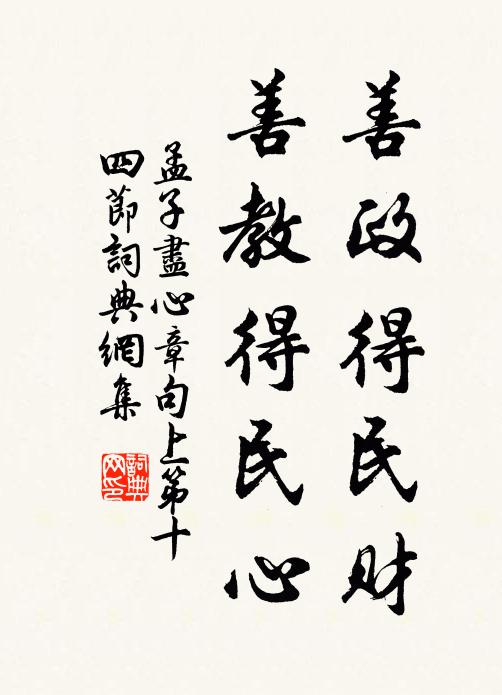 善政得民財
善教得民心
孟子盡心章句上第十
四節詞典網集
詞典網印